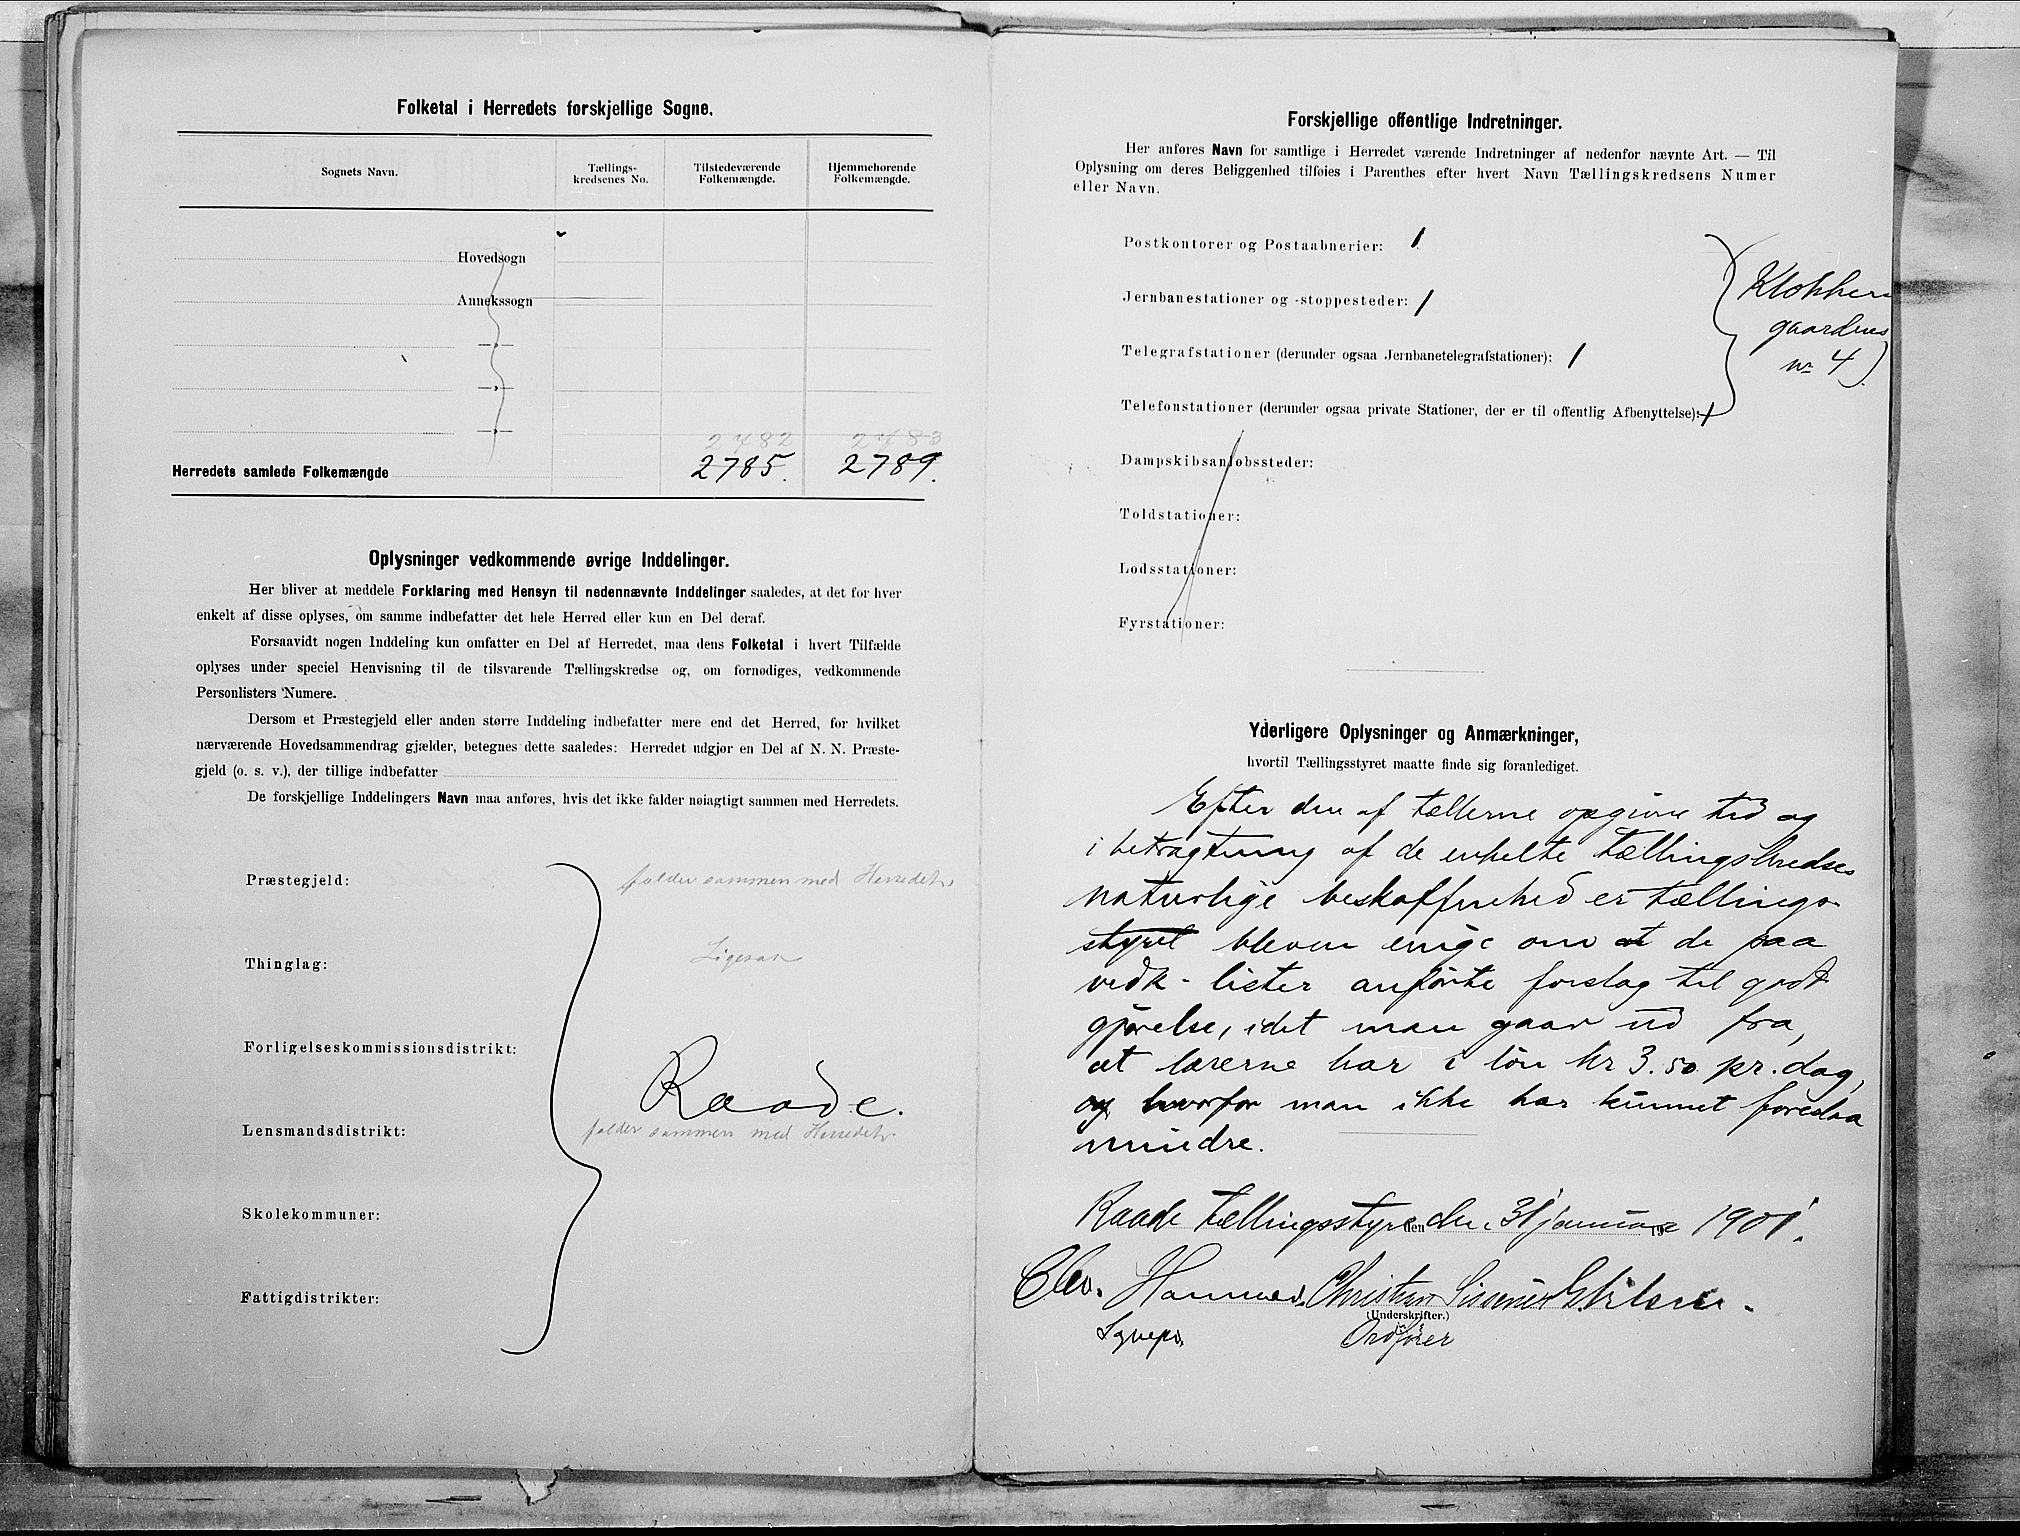 Folketal i Herredets forskjellige Sogne.
Sognets Navn.
Tællings-
kredsenes No.
Tilstedeværende
Folkemængde.
Hjemmehørende
Folkemængde.
Hovedsogn
Annekssogn
—»—
—»—
—»—
2782 2783
Herredets samlede Folkemængde 2785. 2789.
Oplysninger vedkommende øvrige Inddelinger.
Her bliver at meddele Forklaring med Hensyn til nedennævnte Inddelinger saaledes, at det for hver
enkelt af disse oplyses, om samme indbefatter det hele Herred eller kun en Del deraf.
Forsaavidt nogen Inddeling kun omfatter en Del af Herredet, maa dens Folketal i hvert Tilfælde
oplyses under speciel Henvisning til de tilsvarende Tællingskredse og, om fornødiges, vedkommende
Personlisters Numere.
Dersom et Præstegjeld eller anden større Inddeling indbefatter mere end det Herred, for hvilket
nærværende Hovedsammendrag gjælder, betegnes dette saaledes: Herredet udgjør en Del af N. N. Præste-
gjeld (o. s. v.), der tillige indbefatter
De forskjellige Inddelingers Navn maa anføres, hvis det ikke falder nøiagtigt sammen med Herredets.
Præstegjeld: falder sammen med Herredet
Thinglag: Ligesaa
Forligelseskommissionsdistrikt:
Raade.
Lensmandsdistrikt: falder sammen med Herredet
Skolekommuner:
Fattigdistrikter:
Forskjellige offentlige Indretninger.
Her anføres Navn for samtlige i Herredet værende Indretninger af nedenfor nævnte Art. — Til
Oplysning om deres Beliggenhed tilføies i Parenthes efter hvert Navn Tællingskredsens Numer
eller Navn.
Postkontorer og Postaabnerier: 1
Jernbanestationer og -stoppesteder: 1
Telegrafstationer (derunder ogsaa Jernbanetelegrafstationer): 1
Telefonstationer (derunder ogsaa private Stationer, der er til offentlig Afbenyttelse): 1
Klokker
gaardens
nr 4)
Dampskibsanløbssteder:
Toldstationer:
Lodsstationer:
Fyrstationer:
Yderligere Oplysninger og Anmærkninger,
hvortil Tællingsstyret maatte finde sig foranlediget.
Efter den af tællerne opgivne tid og
i betragtning af de enkelte tællingskredses
naturlige beskaffenhed er tællings-
styret bleven enige om at de paa
vedk. lister anførte forslag til godt
gjørelse, idet man gaar ud fra,
at lærerne har i løn kr 3.50 pr. dag,
og hvorfor man ikke har kunnet foreslaa
mindre.
Raade tællingsstyre den den 31 januar 19 1901.
Chr. Hammer. Christian Sissener E. Nilsen.
(Underskrifter.)
Sgnepr. Ordfører